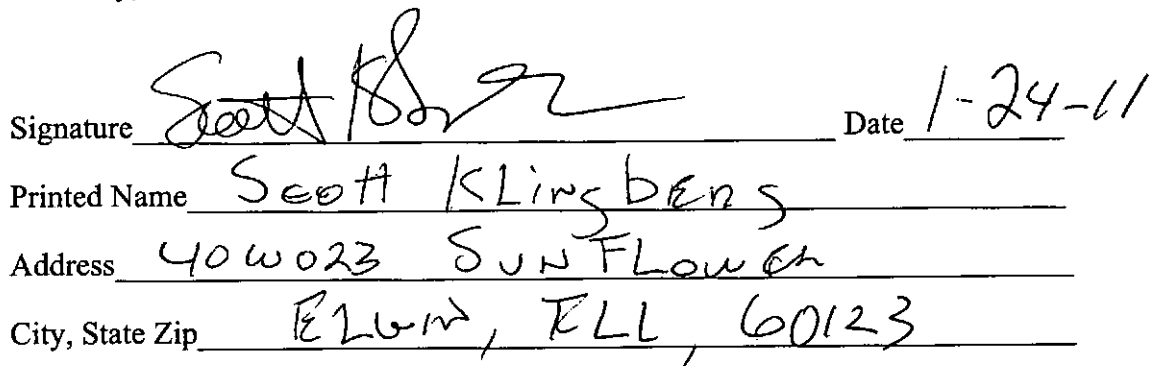 Signature Scott Date 1-24-11
Printed Name Scott KLingberg
Address 40W023 SUNFLower
City, State Zip ELGIN, ILL, 60123